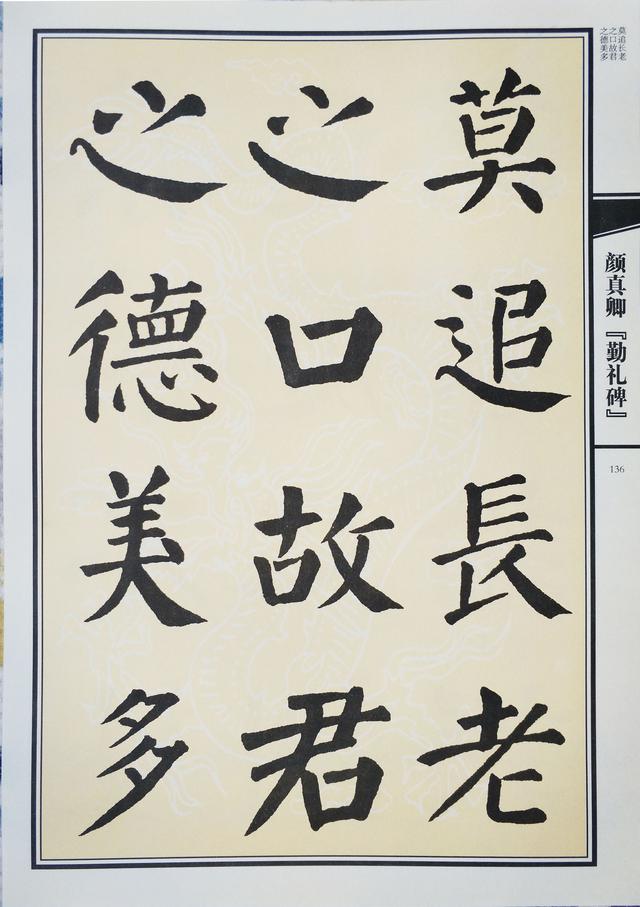 莫追長老
之口故君
之德美多
莫追长老
之口故君
之德美多
颜真卿『勤礼碑』
136